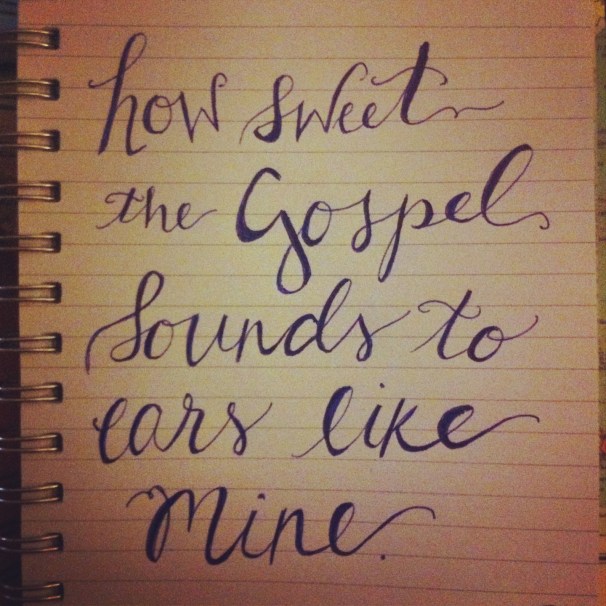 how sweet
the Gospel
Sounds to
ears like
Mine.